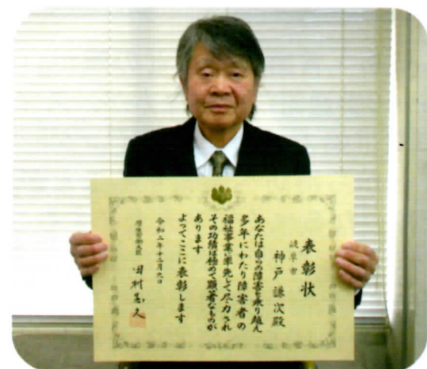 表彰状
岐阜市
神戸謙次殿
あなたは自らの障害を乗り越え
多年にわたり障害者の
福祉事業に率先して尽力され
その功績は極めて顕著なものが
あります
よってここに表彰します
令和二年十二月九日
厚生労働大臣 田村憲久